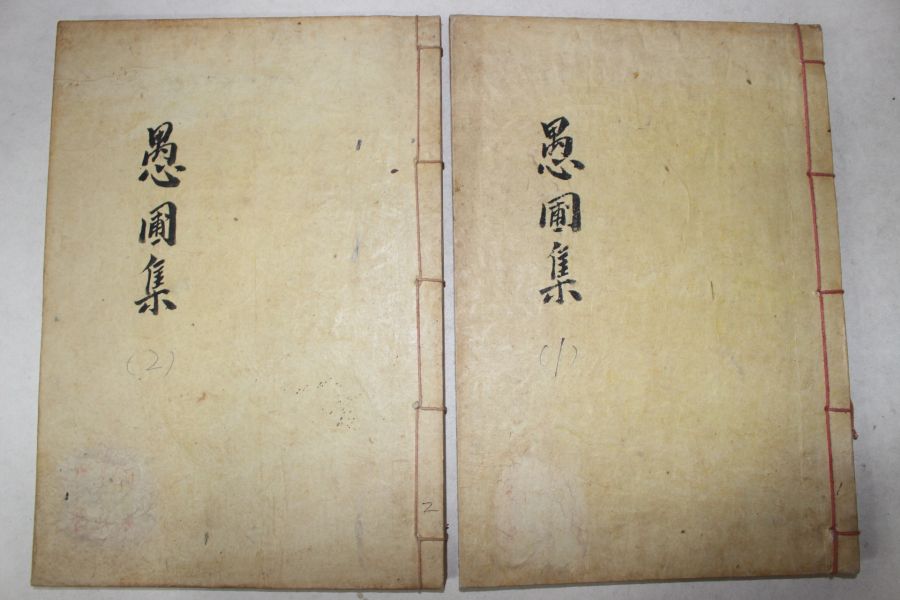 愚圃集
(1)
1
愚圃集
(2)
2